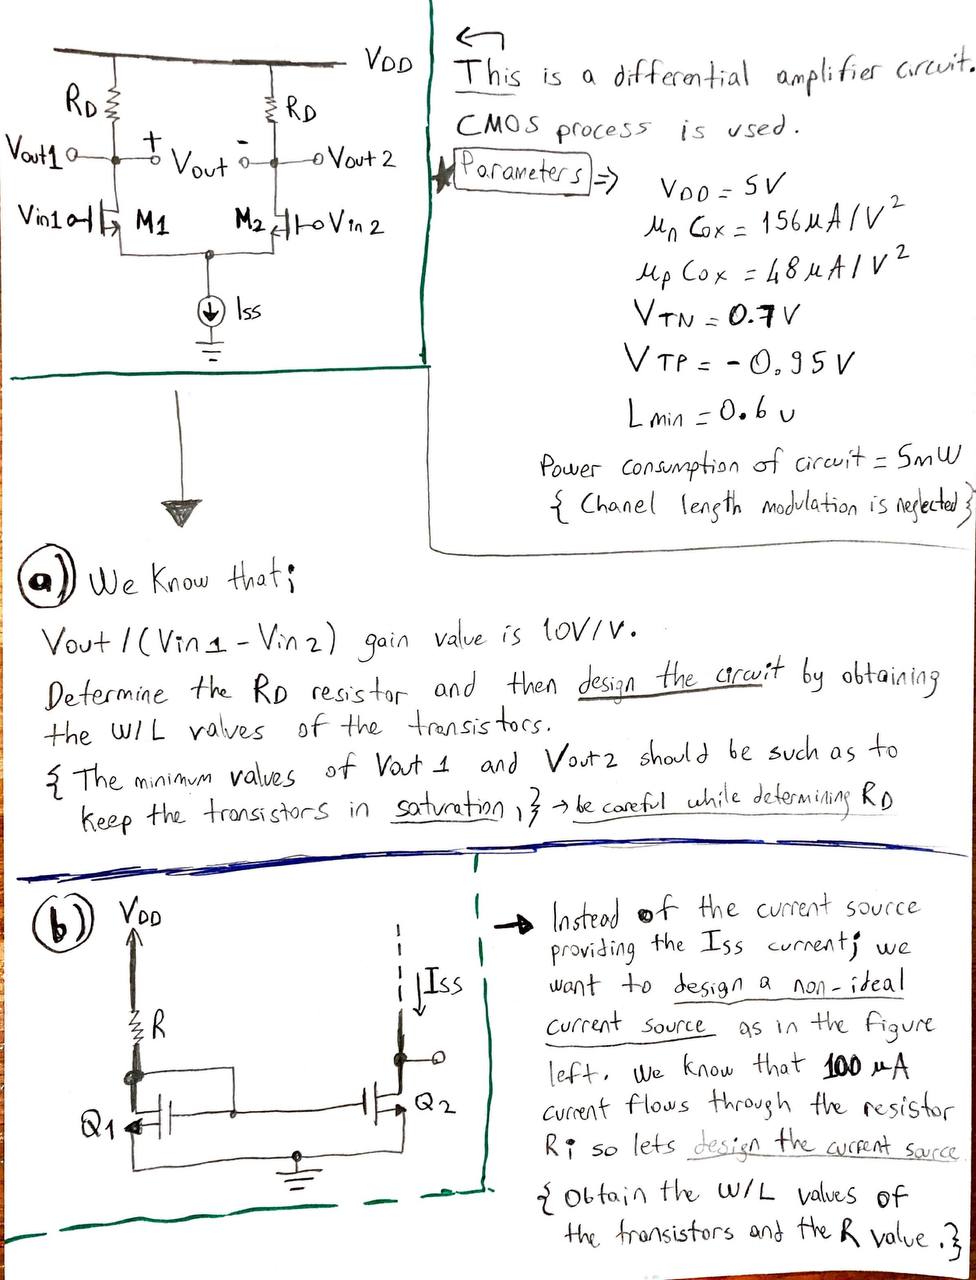 VDD
RD
RD
Vout1
+
Vout
-
Vout2
Vin1
M1
M2
Vin2
Iss
This is a differential amplifier circuit.
CMOS process is used.
Parameters ⇒
VDD = 5V
μn Cox = 156μA/V²
μp Cox = 48μA/V²
VTN = 0.7V
VTP = -0.95V
Lmin = 0.6u
Power consumption of circuit = 5mW
{ Chanel length modulation is neglected }
a) We Know that;
Vout/(Vin1 - Vin2) gain value is 10V/V.
Determine the RD resistor and then design the circuit by obtaining
the W/L values of the transistors.
{ The minimum values of Vout1 and Vout2 should be such as to
keep the transistors in saturation, } → be careful while determining RD
b)
VDD
R
Iss
Q1
Q2
→ Instead of the current source
providing the Iss current; we
want to design a non-ideal
current source as in the figure
left. We know that 100 μA
current flows through the resistor
R; so lets design the current source
{ Obtain the W/L values of
the transistors and the R value. }